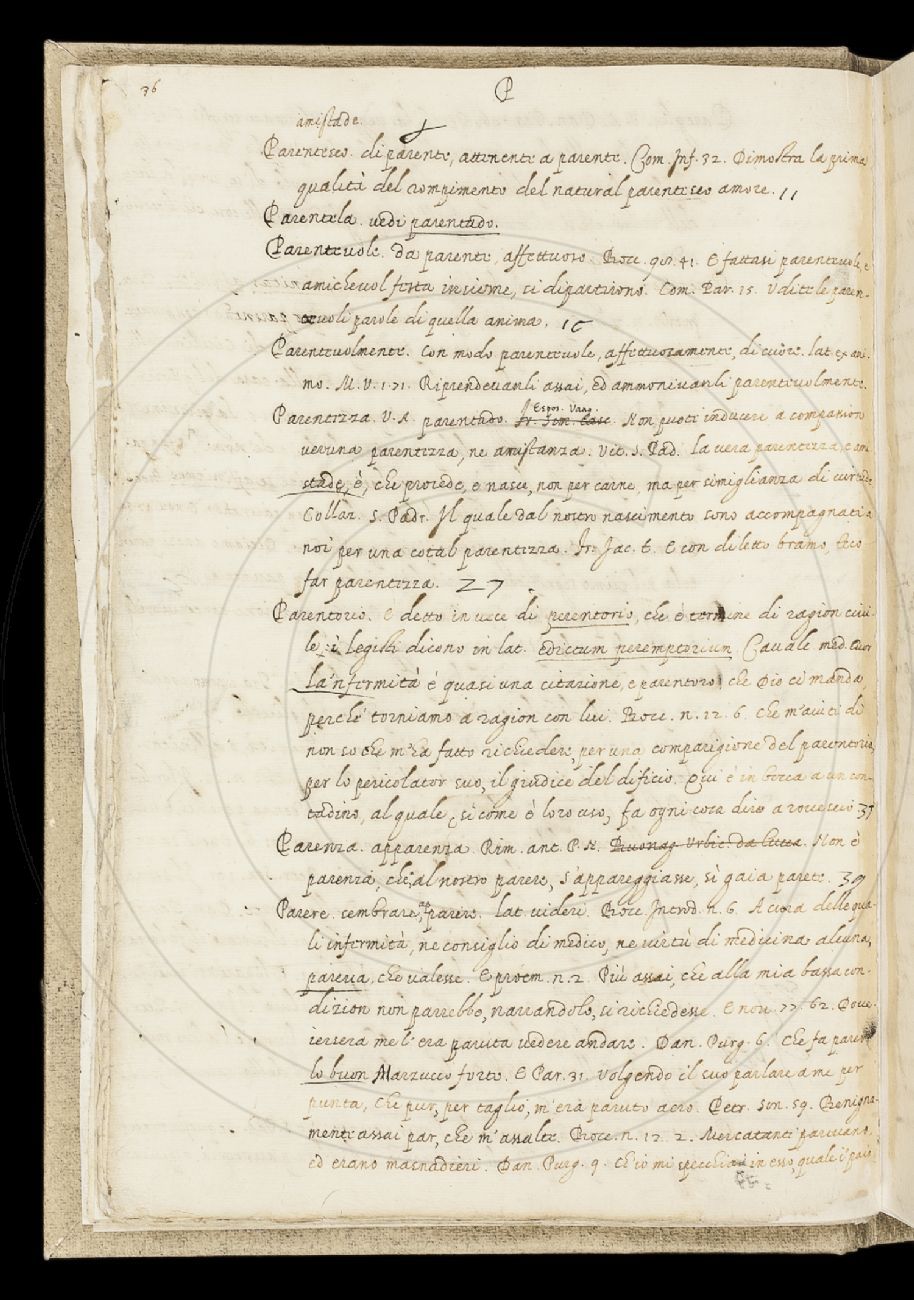 36
P
amistade.
Parentesco. di parente, attenente a parente. Com. Inf. 32. Dimostra la prima
qualità del rompimento del natural parentesco amore. 11
Parentela. vedi parentado.
Parentevole. Da parente, affettuoso. Bocc. g.8. 41. E fattasi parentevole, e
amichevol festa insieme, si dipartirono. Com. Par. 15. Udite le paren-
tevoli parole di quella anima. 16
Parentevolmente. Con modo parentevole, affettuosamente, di cuore. lat. ex ani-
mo. M. V. 1. 71. Riprendevanli assai, ed ammonivanli parentevolmente.
Parentezza. V. A. parentado. Espos. Vang. Non puoti inducere a compasion
veruna parentezza, ne amistanza. Vit. S. Pad. La vera parentezza, e ami-
stade, è, che procede, e nasce, non per carne, ma per simiglianza di virtude.
Collaz. S. Padr. Il quale dal nostro nascimento sono accompagnati a
noi per una cotal parentezza. Fr. Jac. t. E con diletto bramo, teco
far parentezza. 27
Parentorio. E detto in vece di perentorio, che è termine di ragion civi-
le, i legisti dicono in lat. edictum peremptorium. Cavalc. med. cuor
La'nfermità è quasi una citazione, e parentoro che Dio ci manda
perchè torniamo a ragion con lui. Bocc. n. 72. 6. Che m'aiuti di
non so che m'ha fatto richiedere, per una comparigione del parentorio
per lo pericolator suo, il giudice del dificio. Qui è in bocca a un con-
tadino, al quale, si come è loro uso, fa ogni cosa dire a rovescio 37
Parenza. apparenza. Rim. ant. P. N. Buonag. Urbic. da Lucca. Non è
parenza, che, al nostro parere, S'appareggiasse, sì gaia parete. 39
Parere. sembrare, apparere. lat. videri. Bocc. Introd. n. 6. A cura delle qua-
li infermità, ne consiglio di medico, ne virtù di medicina alcuna,
pareva, che valesse. E proem. n. 2. Più assai, che alla mia bassa con-
dizion non parrebbe, narrandolo, si richiedesse. E nov. 77. 62. Dove
iersera me l'era paruta vedere andare. Dan. Purg. 6. Che fa parer
lo buon Marzucco forte. E Par. 31. Volgendo il suo parlare a me per
punta, Che pur, per taglio, m'era paruto acro. Petr. Son. 59. Benigna-
mente assai par, che m'assalte. Bocc. n. 12. 2. Mercatanti parevano,
ed erano masnadieri. Dan. Purg. 9. Ch'io mi specchiai in esso, quale i' paio